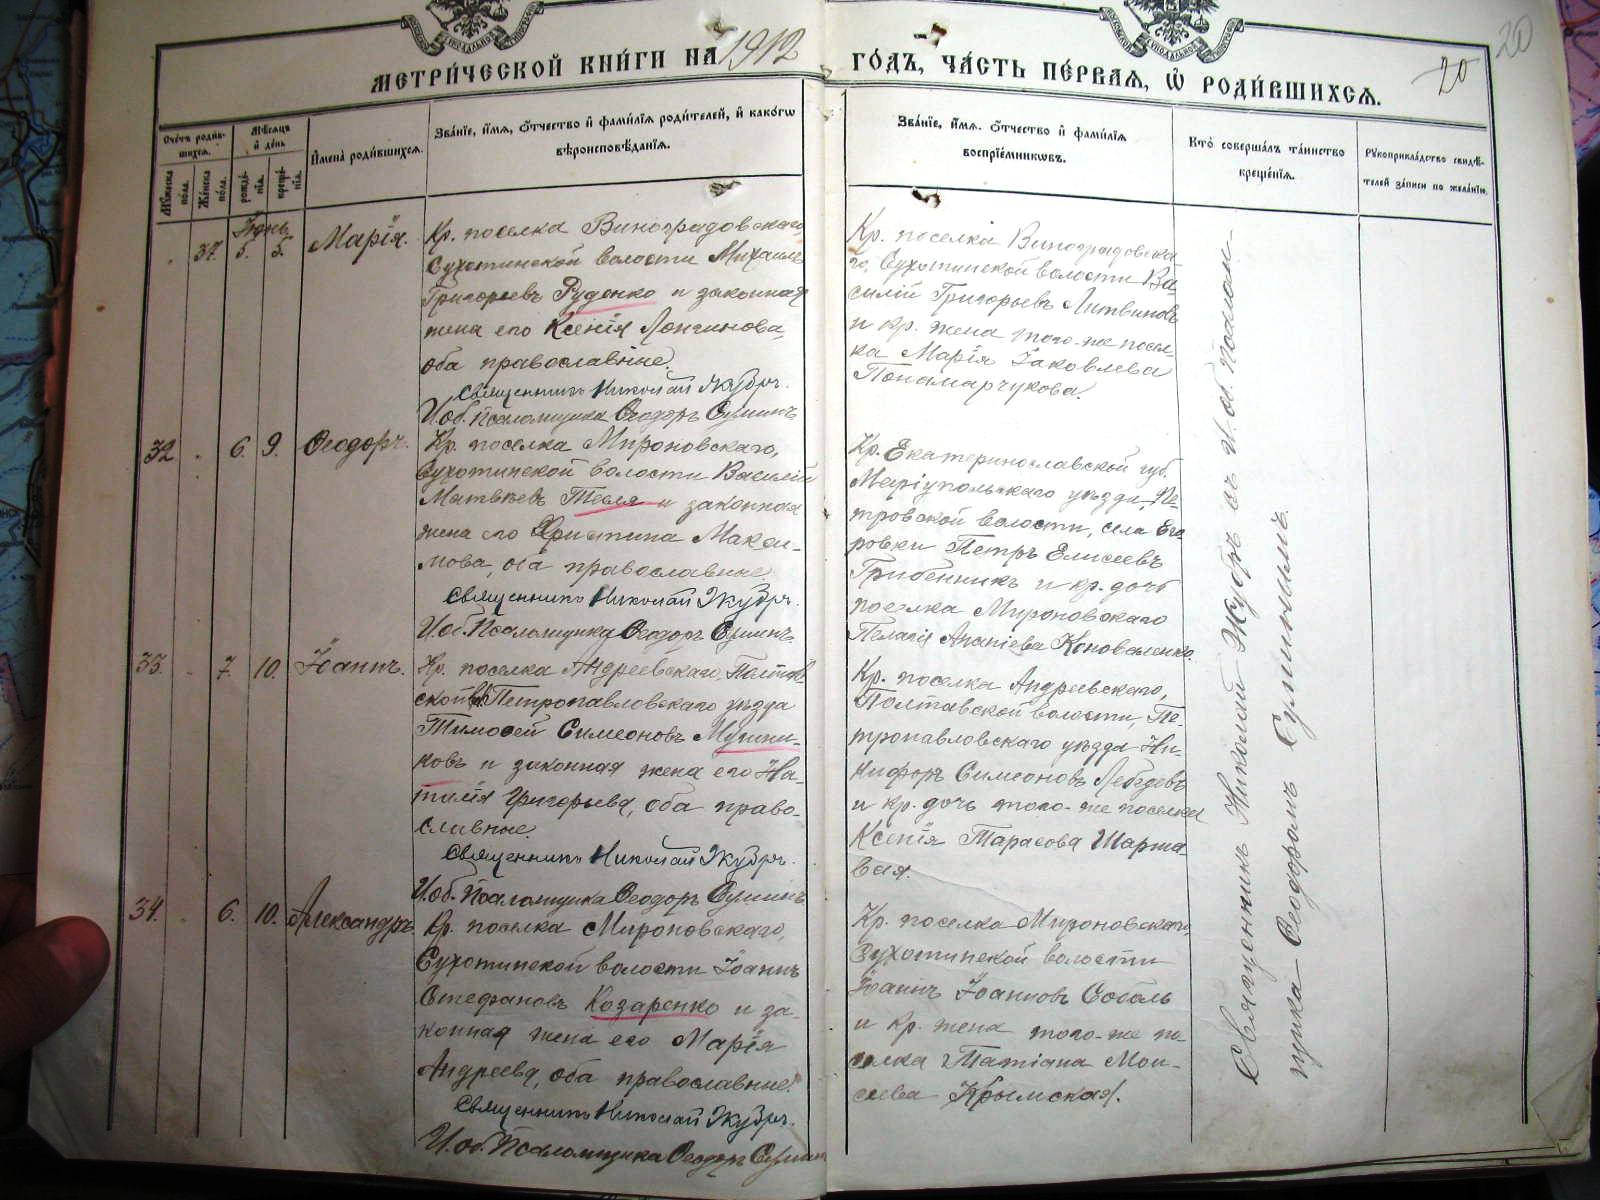 МЕТРИ́ЧЕСКОЙ КНИ́ГИ НА 1912 ГОДЪ, ЧА́СТЬ ПЕ́РВАЯ, Ѡ РОДИ́ВШИХСЯ.
20
20
Сче́тъ роди́в-
шихся.
Му́жеска по́ла.
Же́нска по́ла.
Мѣ́сяцъ
и де́нь
рожде́-
нія.
креще́-
нія.
И́мена роди́вшихся.
Зва́ніе, и́мя, о́тчество и фами́лія роди́телей, и како́гѡ
вѣроисповѣ́данія.
Зва́ніе, и́мя. о́тчество и фами́лія
воспріе́мникѡвъ.
Кто̀ соверша́лъ та́инство
креще́нія.
Рукоприкла́дство свидѣ́-
телей за́писи по жела́нію.
Іюнь
37. 5. 5. Марія.
Кр. поселка Виноградовскаго,
Сухотинской волости Михаилъ
Григорьевъ Руденко и законная
жена его Ксенія Лонгинова,
оба православные.
Священникъ Николай Жубръ.
И.об. Псаломщика Ѳеодоръ Сулинъ
Кр. поселка Виноградовска-
го, Сухотинской волости Ва-
силій Григорьевъ Литвиновъ
и кр. жена того-же посел-
ка Марія Іаковлева
Пономарчукова.
32. 6. 9. Ѳеодоръ.
Кр. поселка Мироновскаго,
Сухотинской волости Василій
Матвѣевъ Тесля и законная
жена его Христина Макси-
мова, оба православные.
Священникъ Николай Жубръ.
И.об. Псаломщика Ѳеодоръ Сулинъ.
Кр. Екатеринославской губ.
Маріупольскаго уѣзда, Пе-
тровской волости, села Его-
ровки Петръ Елисеевъ
Грибенникъ и кр. дочь
поселка Мироновскаго
Пелагія Ананіева Коноваленко.
33. 7. 10. Іоаннъ.
Кр. поселка Андреевскаго, Полтав-
ской в. Петропавловскаго уѣзда
Тимоѳей Симеоновъ
и законная жена его На-
талія Григорьева, оба право-
славные.
Священникъ Николай Жубръ.
И.об. Псаломщика Ѳеодоръ Сулинъ
Кр. поселка Андреевскаго,
Полтавской волости, Пе-
тропавловскаго уѣзда Ни-
кифоръ Симеоновъ Лебедевъ
и кр. дочь того-же поселка
Ксенія Тарасова
34. 6. 10. Александръ.
Кр. поселка Мироновскаго,
Сухотинской волости Іоаннъ
Стефановъ Козаренко и за-
конная жена его Марія
Андреева, оба православные.
Священникъ Николай Жубръ.
И.об. Псаломщика Ѳеодоръ Сулинъ
Кр. поселка Мироновскаго,
Сухотинской волости
Іоаннъ Іоанновъ Соболь
и кр. жена того-же по-
селка Татіана Мои-
сеева Крымская.
Священникъ Николай Жубръ съ И.об. Псалом-
щика Ѳеодоромъ Сулинымъ.